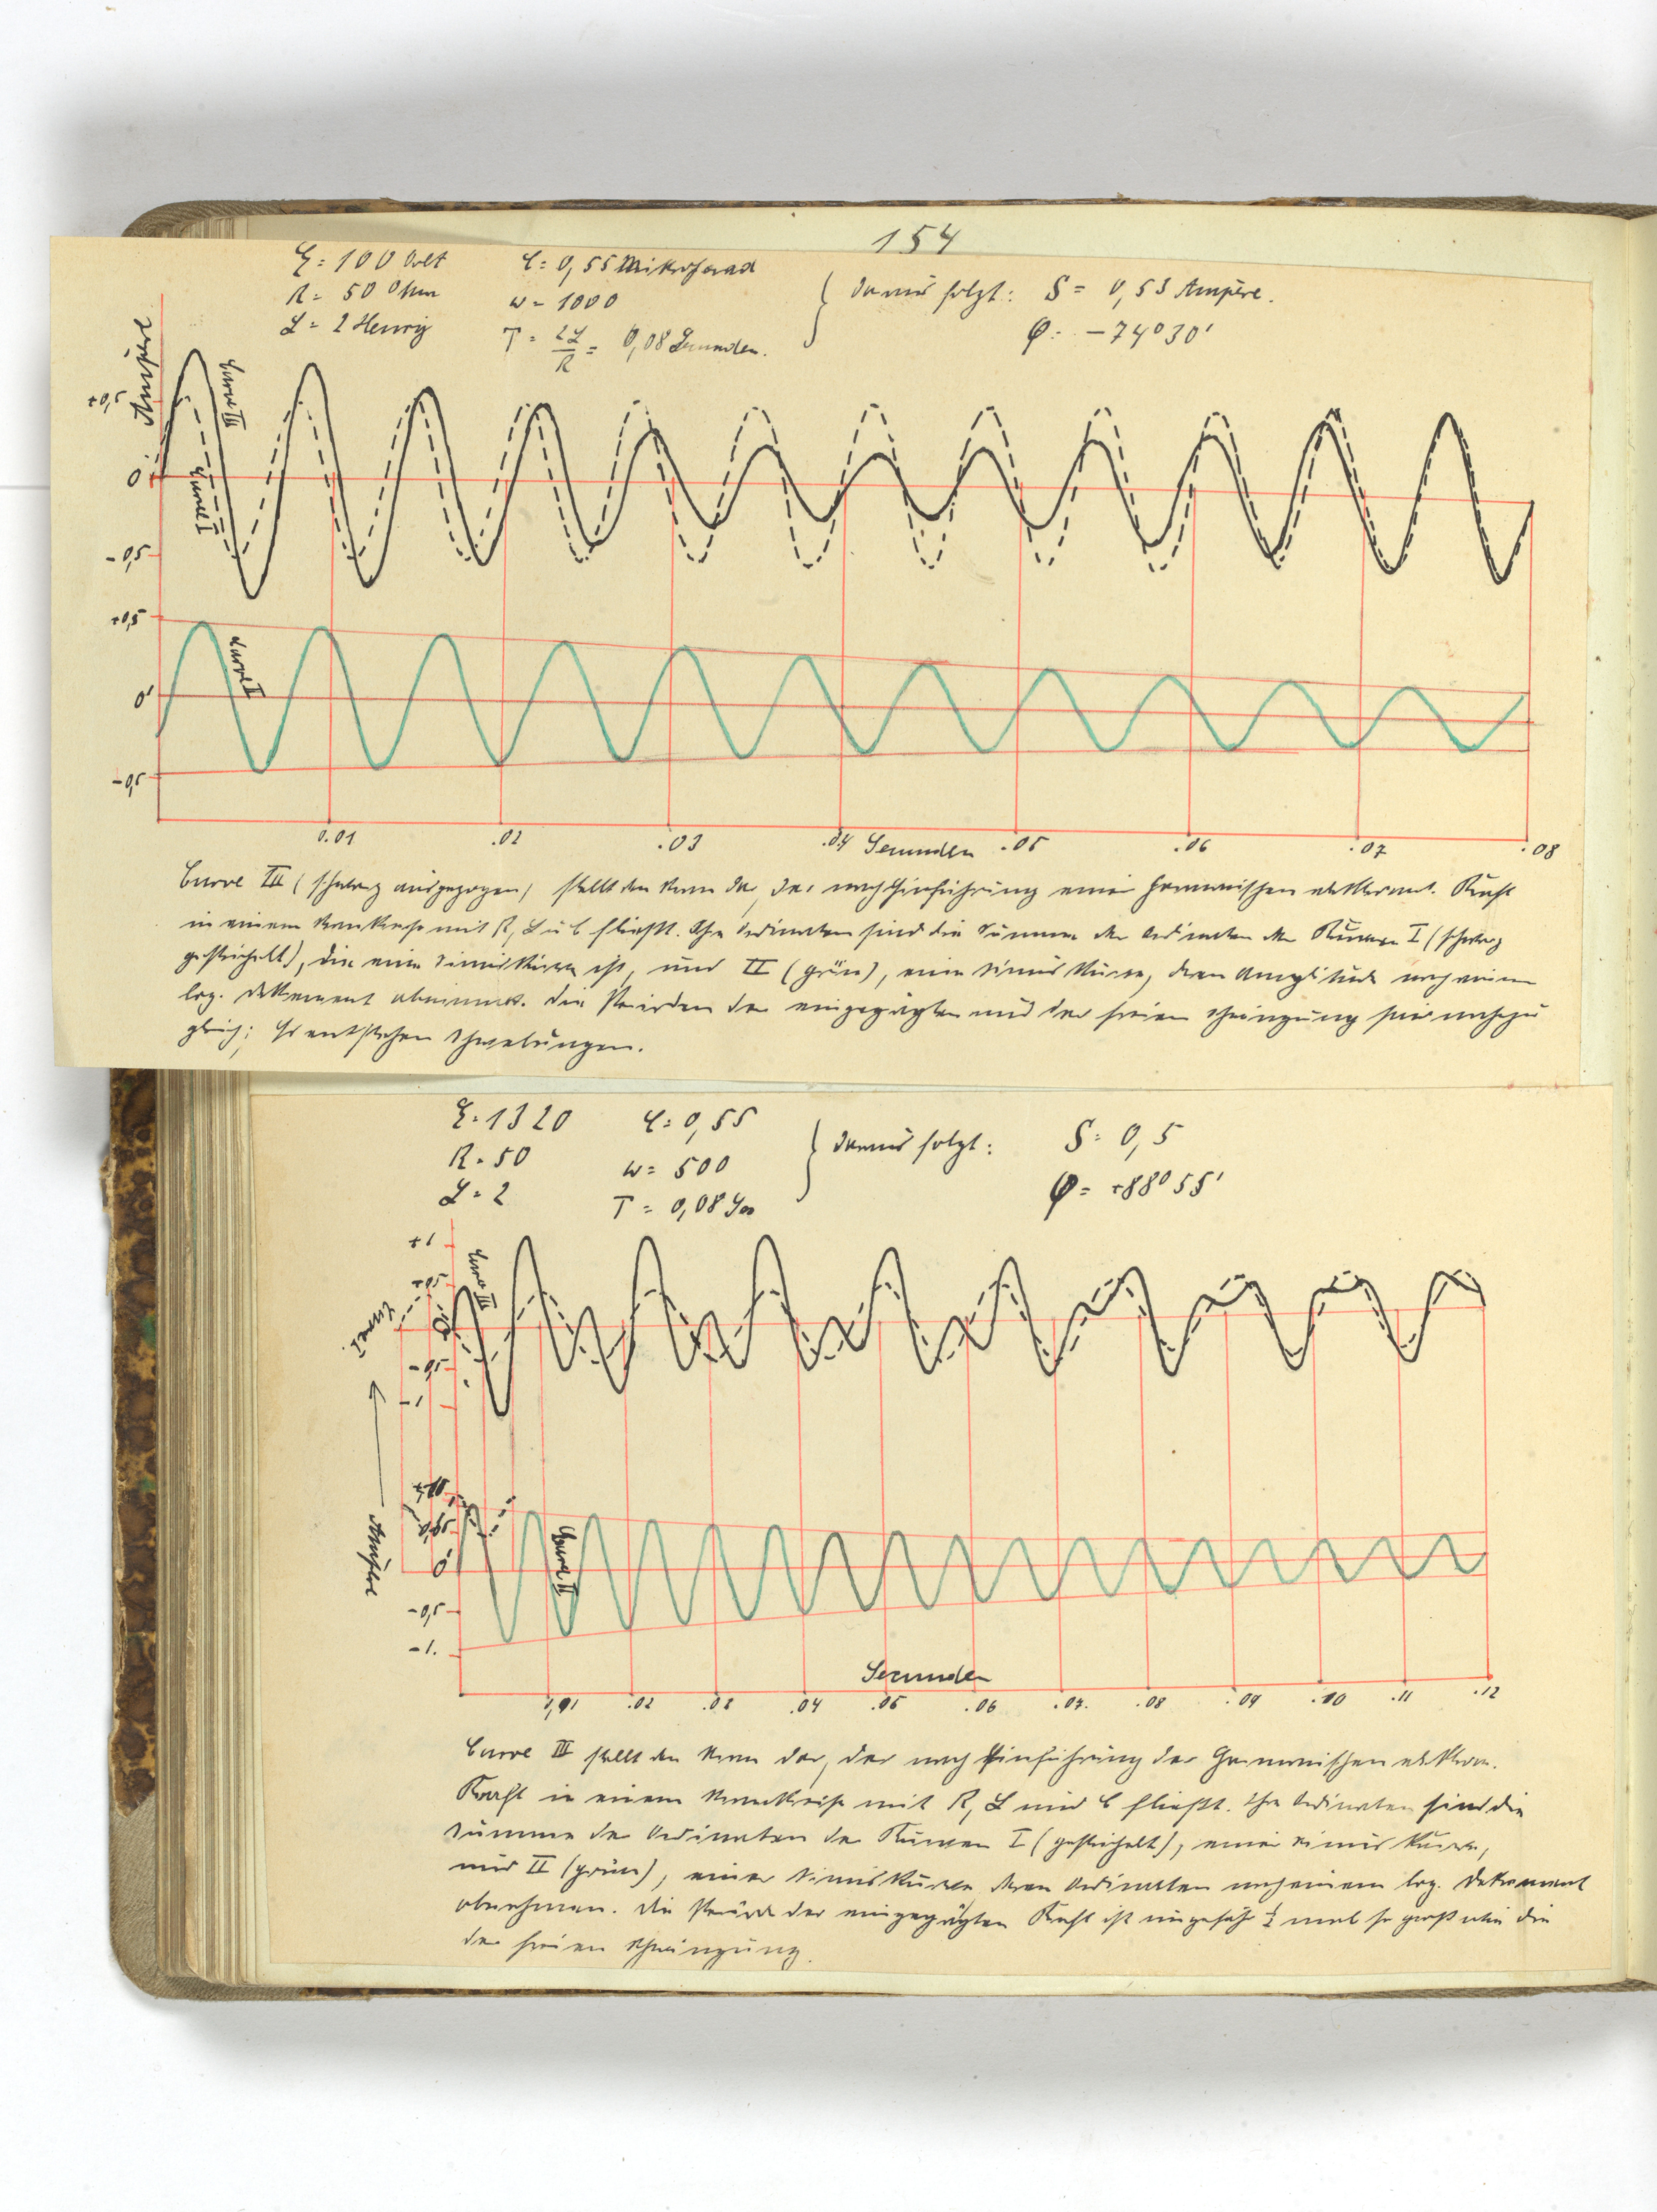 154
E = 100 Volt
C = 0,55 Mikrofarad
R = 50 Ohm
w = 1000
L = 2 Henry
T = 2L/R = 0,08 Secunden.
daraus folgt: S = 0,53 Ampère.
φ = -74°30'
Ampère
Curve III
+0,5
0
Curve I
-0,5
+0,5
Curve II
0'
-0,5
0.01 .02 .03 .04 Secunden .05 .06 .07 .08
Curve III (schwarz ausgezogen) stellt den Strom dar, der nach Einführung einer harmonischen elektromot. Kraft
in einem Stromkreise mit R, L u C fließt. Ihre Ordinaten sind die Summe der Ordinaten der Kurven I (schwarz
gestrichelt), die eine Sinuskurve ist, und II (grün), eine Sinus Kurve, deren Amplitude nach einem
log. Dekrement abnimmt. Die Perioden der eingeprägten und der freien Schwingung sind nahezu
gleich; es entstehen Schwebungen.
E = 1320
C = 0,55
R = 50
w = 500
L = 2
T = 0,08
daraus folgt: S = 0,5
φ = +88°55'
+1
Curve III
+0,5
Curve I
0
-0,5
-1
Ampère
0
Curve II
-0,5
-1.
Secunden
0,01 .02 .03 .04 .05 .06 .07. .08 .09 .10 .11 .12
Curve III stellt den Strom dar, der nach Einführung der harmonischen elektrom.
Kraft in einem Stromkreise mit R, L und C fließt. Ihre Ordinaten sind die
Summe der Ordinaten der Kurven I (gestrichelt), einer Sinus Kurve,
und II (grün), einer Sinuskurve deren Ordinaten nach einem log. Dekrement
abnehmen. Die Periode der eingeprägten Kraft ist ungefähr mal so groß wie die
der freien Schwingung.